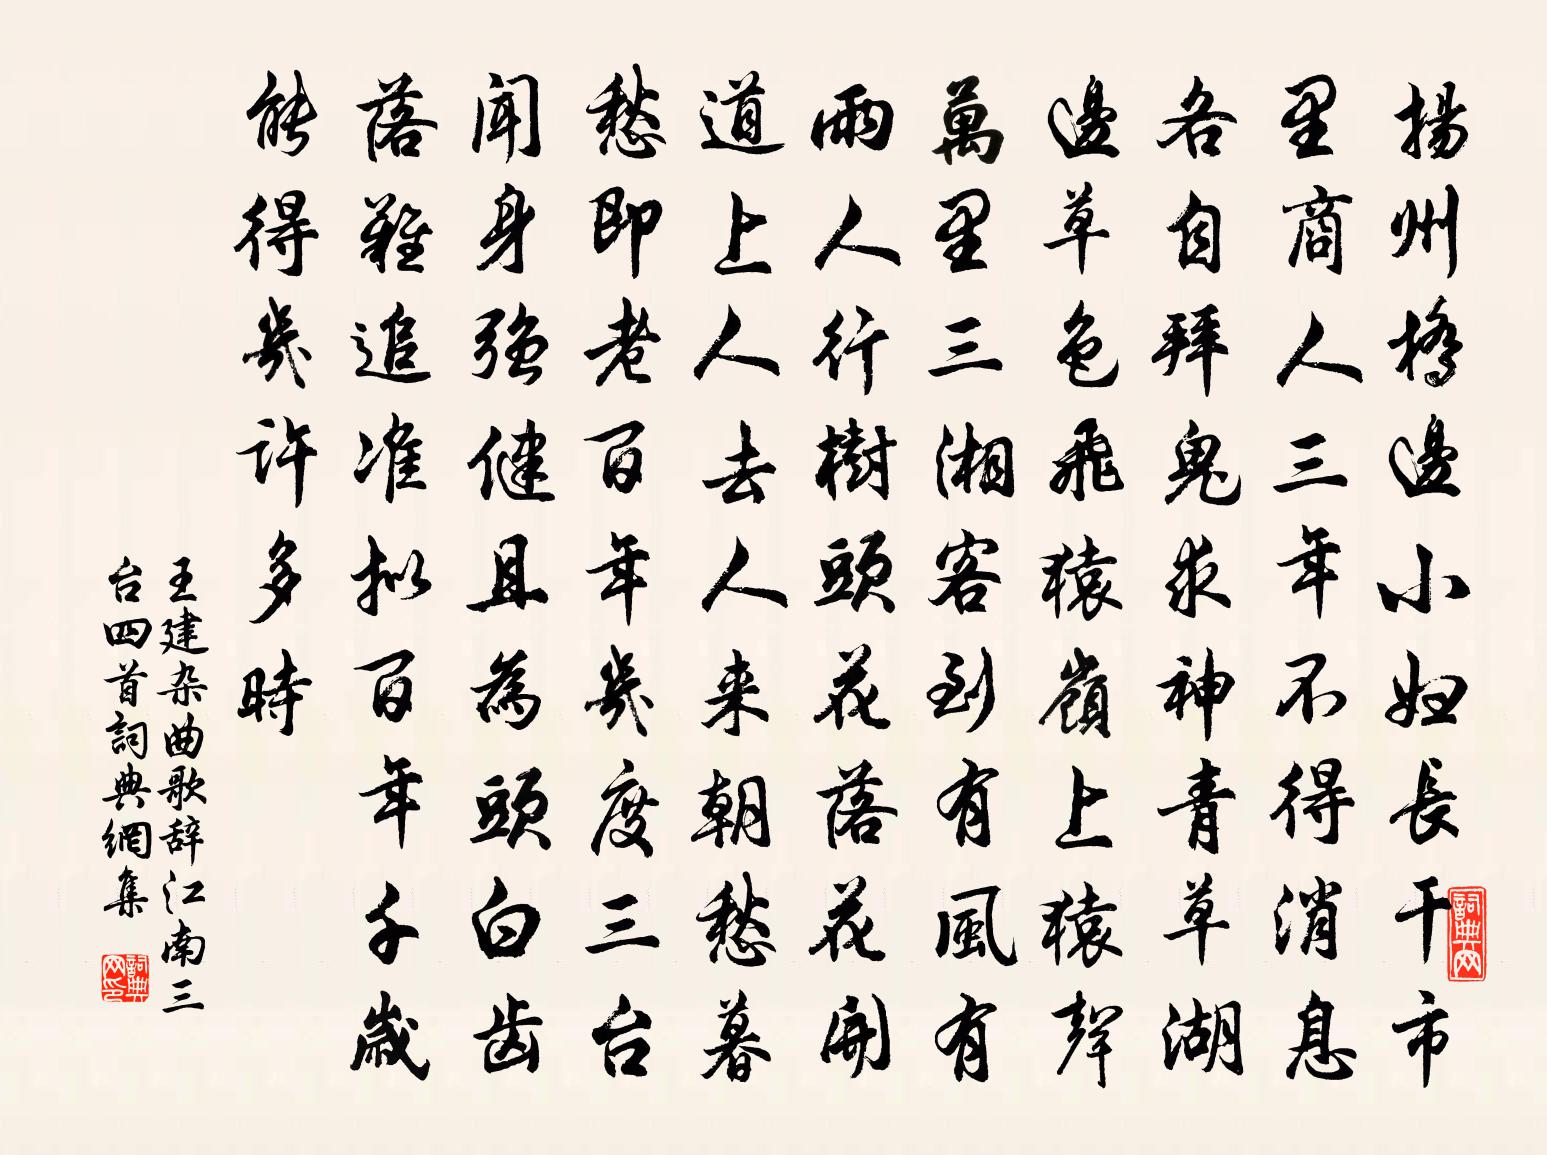 揚州橋邊小婦長干市
里商人三年不得消息
各自拜鬼求神青草湖
邊草色飛猿嶺上猿聲
萬里三湘客到有風有
雨人行樹頭花落花開
道上人去人来朝愁暮
愁即老百年幾度三台
聞身強健且為頭白齿
落難追准拟百年千歲
能得幾許多時
王建杂曲歌辞江南三
台四首詞典網集
詞典网
詞典网印